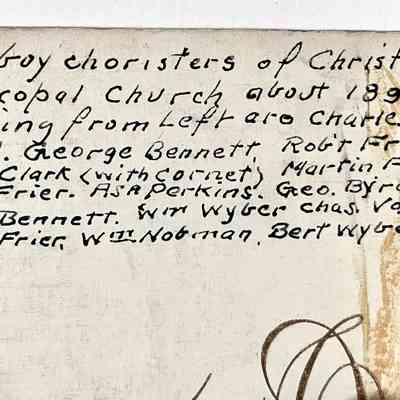 boy choristers of Christ
copal Church about 189
ing from Left are Charles
. George Bennett, Rob't Fr
Clark (with cornet) Martin F
Frier. Asa Perkins. Geo. Byrd
Bennett. Wm Wyber Chas. Va
Frier, Wm Nobman, Bert Wybe